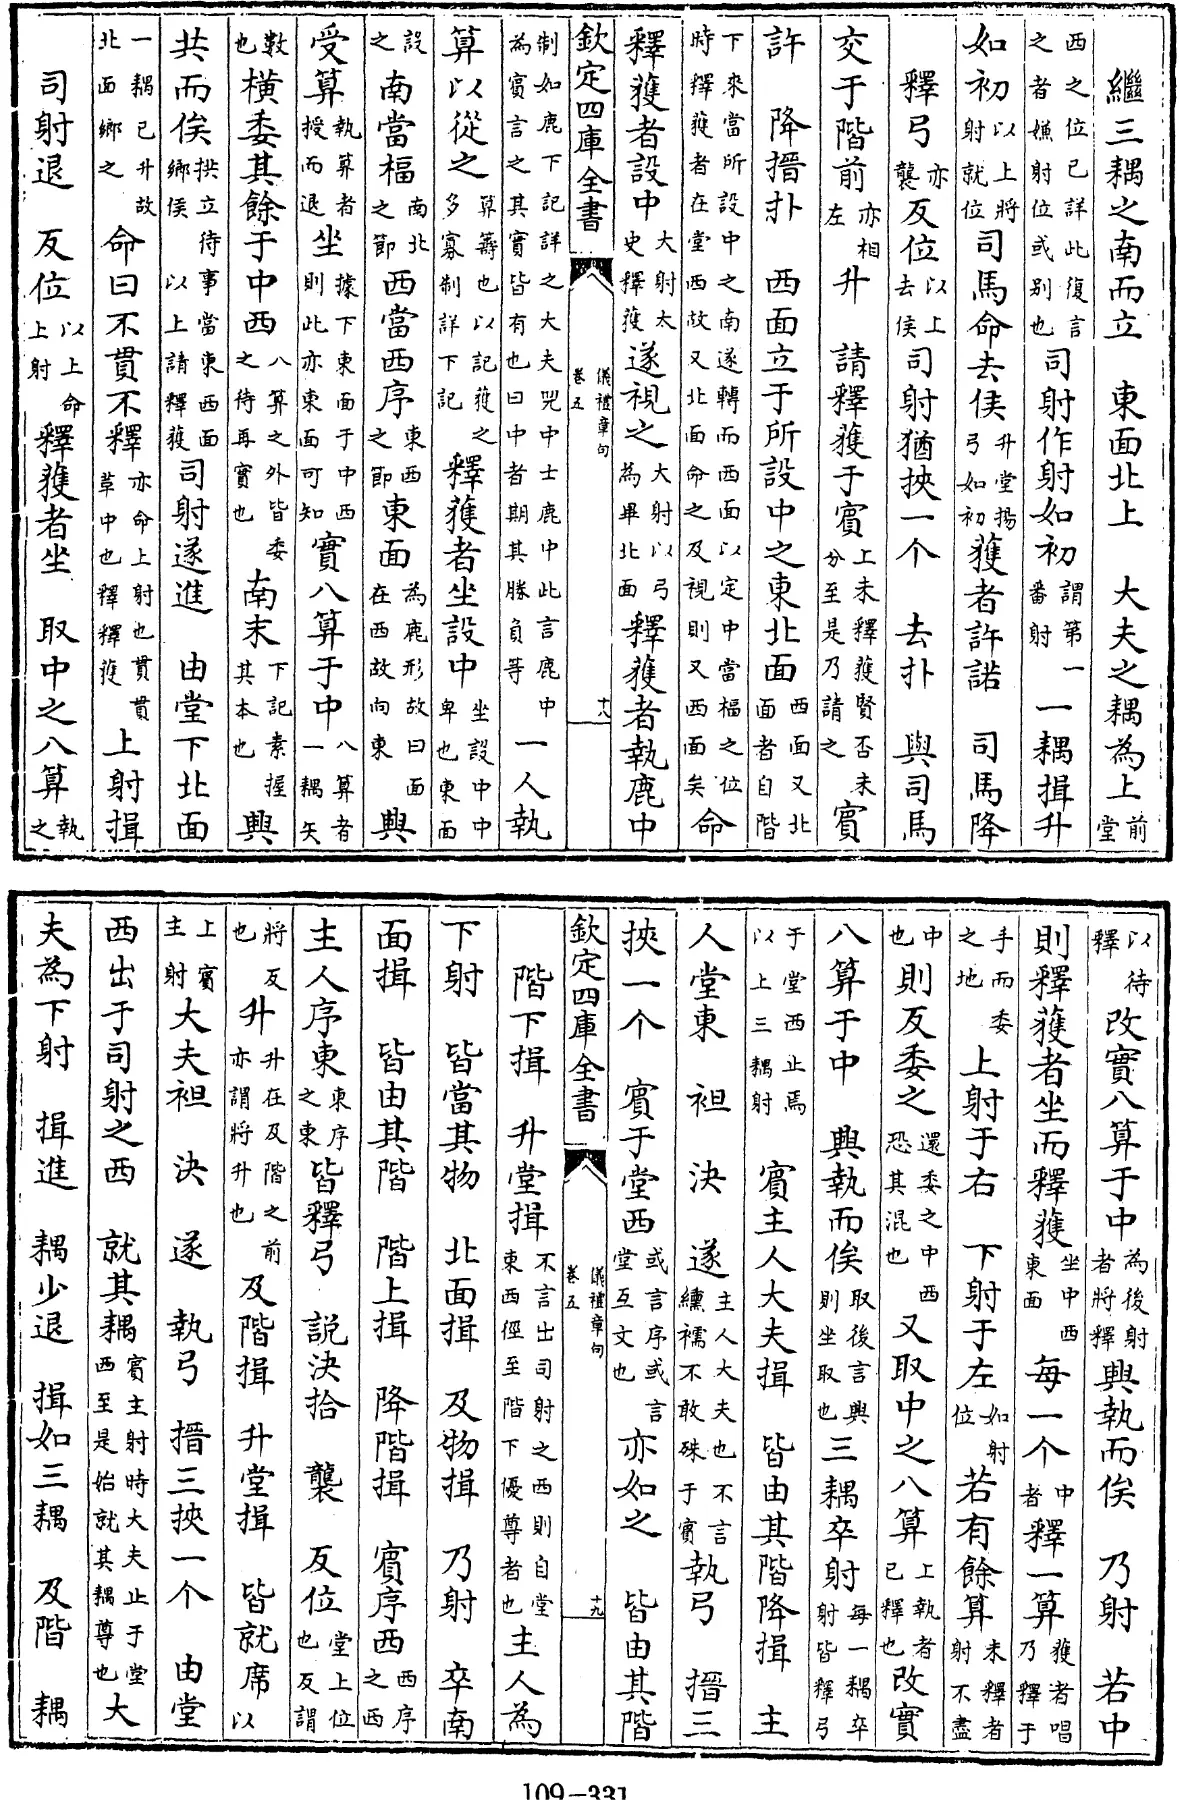 繼三耦之南而立　東面北上　大夫之耦為上前堂
西之位已詳此復言之者嫌射位或别也司射作射如初謂第一番射一耦揖升
如初以上將射就位司馬命去侯升堂揚弓如初獲者許諾　司馬降
釋弓亦襲反位以上去侯司射猶挾一个　去扑　與司馬
交于階前亦相左升　請釋獲于賓上未釋獲賢否未分至是乃請之賓
許　降搢扑　西面立于所設中之東北面西面又北面者自階
下來當所設中之南遂轉而西面以定中當楅之位時釋獲者在堂西故又北面命之及視則又西面矣命
釋獲者設中大射太史釋獲遂視之大射以弓為畢北面釋獲者執鹿中
欽定四庫全書　儀禮章句　卷五　十八
制如鹿下記詳之大夫兕中士鹿中此言鹿中為賓言之其實皆有也曰中者期其勝負等一人執
算以從之算籌也以記獲之多寡制詳下記釋獲者坐設中坐設中中卑也東面
設之南當楅南北之節西當西序東西之節東面為鹿形故曰面在西故向東興
受算執算者授而退坐據下東面于中西則此亦東面可知實八算于中八算者一耦矢
數也橫委其餘于中西八算之外皆委之待再實也南末下記素握其本也興
共而俟拱立待事當東西面鄉侯以上請釋獲司射遂進　由堂下北面
一耦已升故北面鄉之命曰不貫不釋亦命上射也貫貫草中也釋釋獲上射揖
司射退　反位以上命上射釋獲者坐　取中之八算執之
以待釋改實八算于中為後射者將釋興執而俟　乃射　若中
則釋獲者坐而釋獲坐中西東面每一个中者釋一算獲者唱乃釋于
手而委之地上射于右　下射于左如射位若有餘算未釋者射不盡
中也則反委之還委之中西恐其混也又取中之八算上執者已釋也改實
八算于中　興執而俟取後言興則坐取也三耦卒射每一耦卒射皆釋弓
于堂西止焉以上三耦射賓主人大夫揖　皆由其階降揖　主
人堂東　袒　決　遂主人大夫也不言纁襦不敢殊于賓執弓　搢三
挾一个　賓于堂西或言序或言堂互文也亦如之　皆由其階
欽定四庫全書　儀禮章句　卷五　十九
階下揖　升堂揖不言出司射之西則自堂東西徑至階下優尊者也主人為
下射　皆當其物　北面揖　及物揖　乃射　卒南
面揖　皆由其階　階上揖　降階揖　賓序西西序之西
主人序東東序之東皆釋弓　說決拾　襲　反位堂上位也反謂
將反也升升在及階之前亦謂將升也及階揖　升堂揖　皆就席以
上賓主射大夫袒　決　遂　執弓　搢三挾一个　由堂
西出于司射之西　就其耦賓主射時大夫止于堂西至是始就其耦尊也大
夫為下射　揖進　耦少退　揖如三耦　及階　耦
109-331